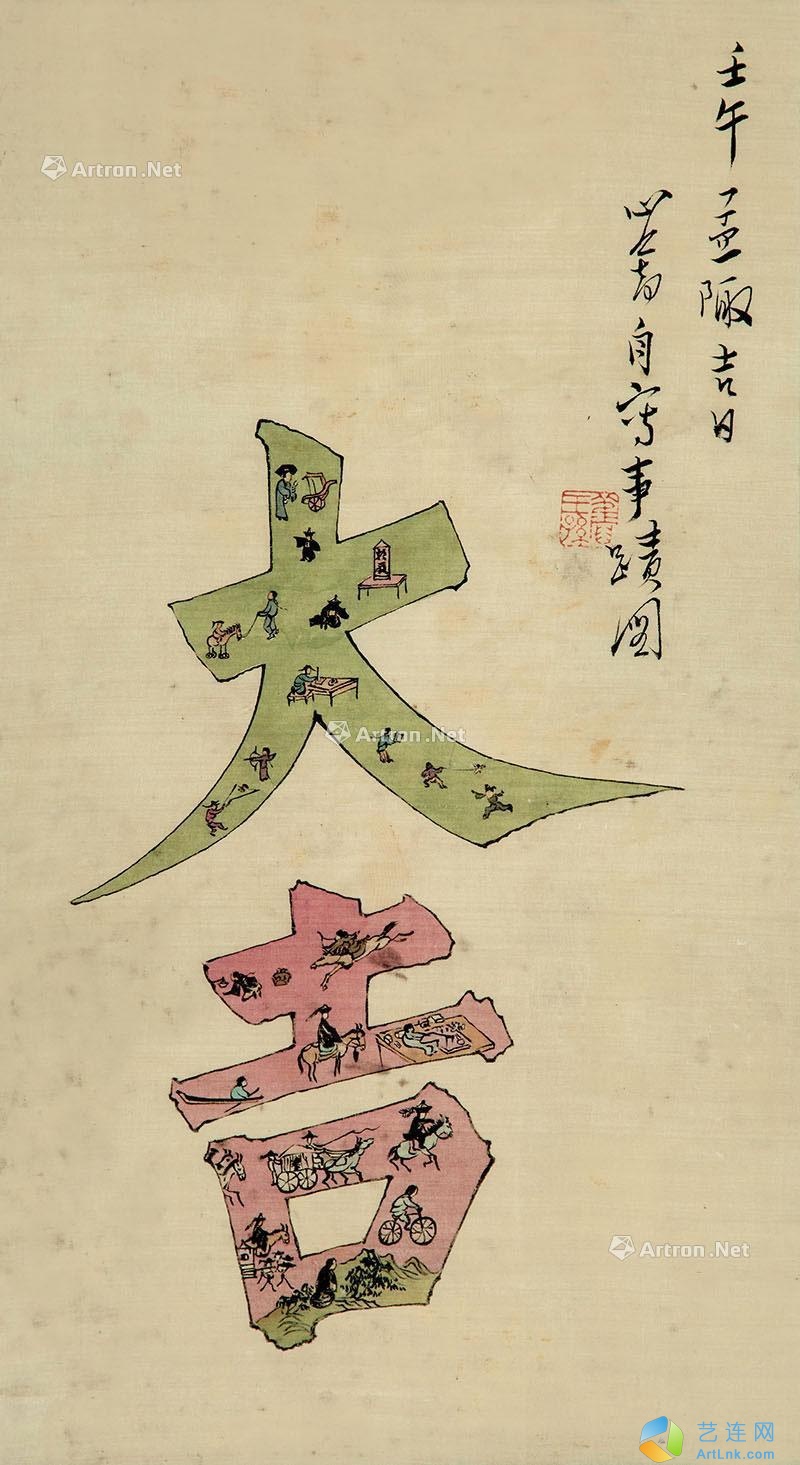 壬午孟陬吉日
心畬自寫事蹟圖
舊王孫
大吉
Artron.Net
Artron.Net
Artron.Net
艺连网
ArtLnk.com